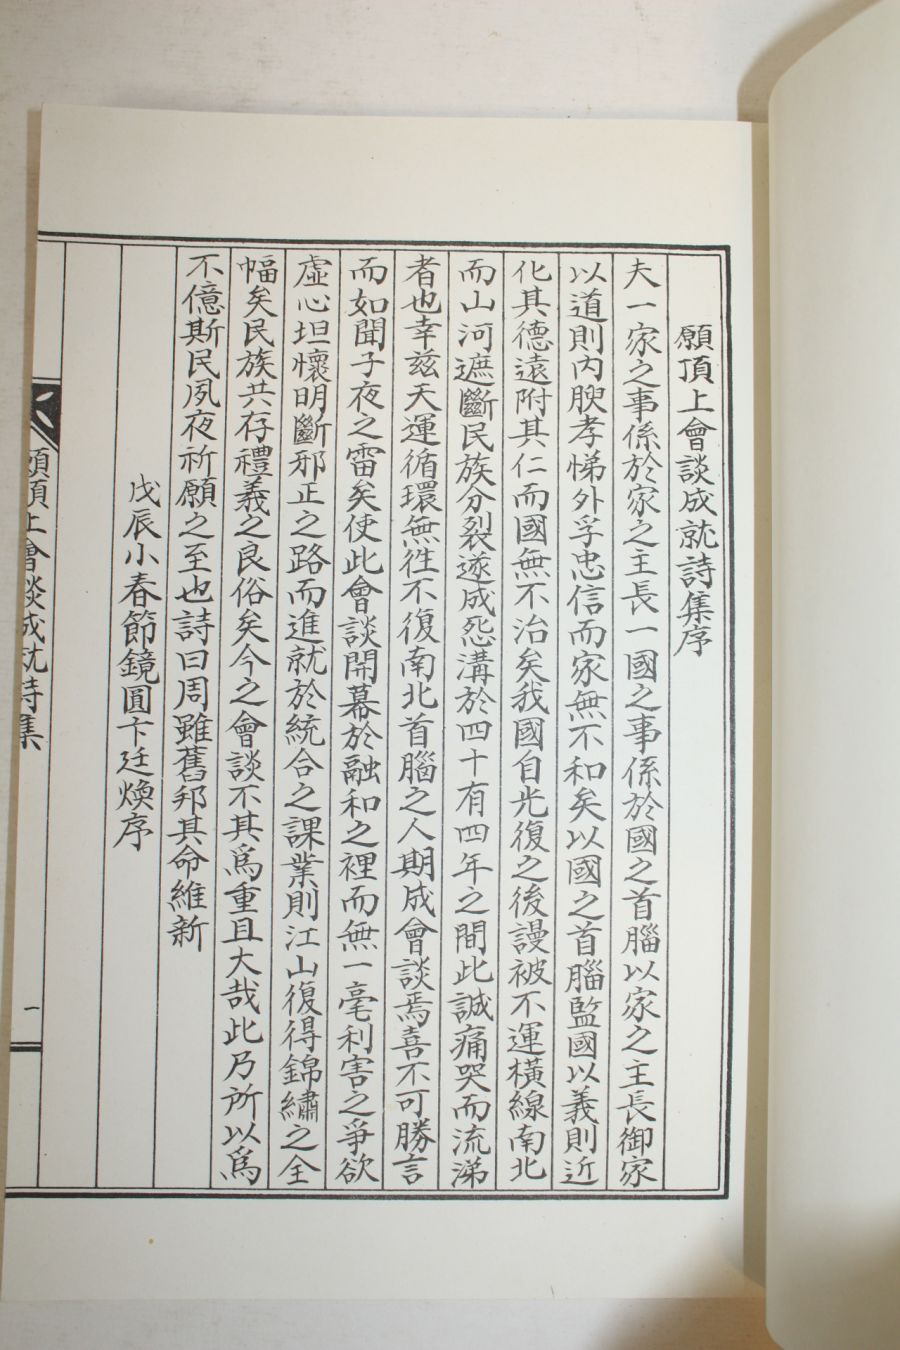 願頂上會談成就詩集序
夫一家之事係於家之主長一國之事係於國之首腦以家之主長御家
以道則內腴孝悌外孚忠信而家無不和矣以國之首腦監國以義則近
化其德遠附其仁而國無不治矣我國自光復之後謾被不運橫線南北
而山河遮斷民族分裂遂成怨溝於四十有四年之間此誠痛哭而流涕
者也幸玆天運循環無徃不復南北首腦之人期成會談焉喜不可勝言
而如聞子夜之雷矣使此會談開幕於融和之裡而無一毫利害之爭欲
虛心坦懷明斷邪正之路而進就於統合之課業則江山復得錦繡之全
幅矣民族共存禮義之良俗矣今之會談不其爲重且大哉此乃所以爲
不億斯民夙夜祈願之至也詩曰周雖舊邦其命維新
戊辰小春節鏡圓卞廷煥序
願頂上會談成就詩集
一